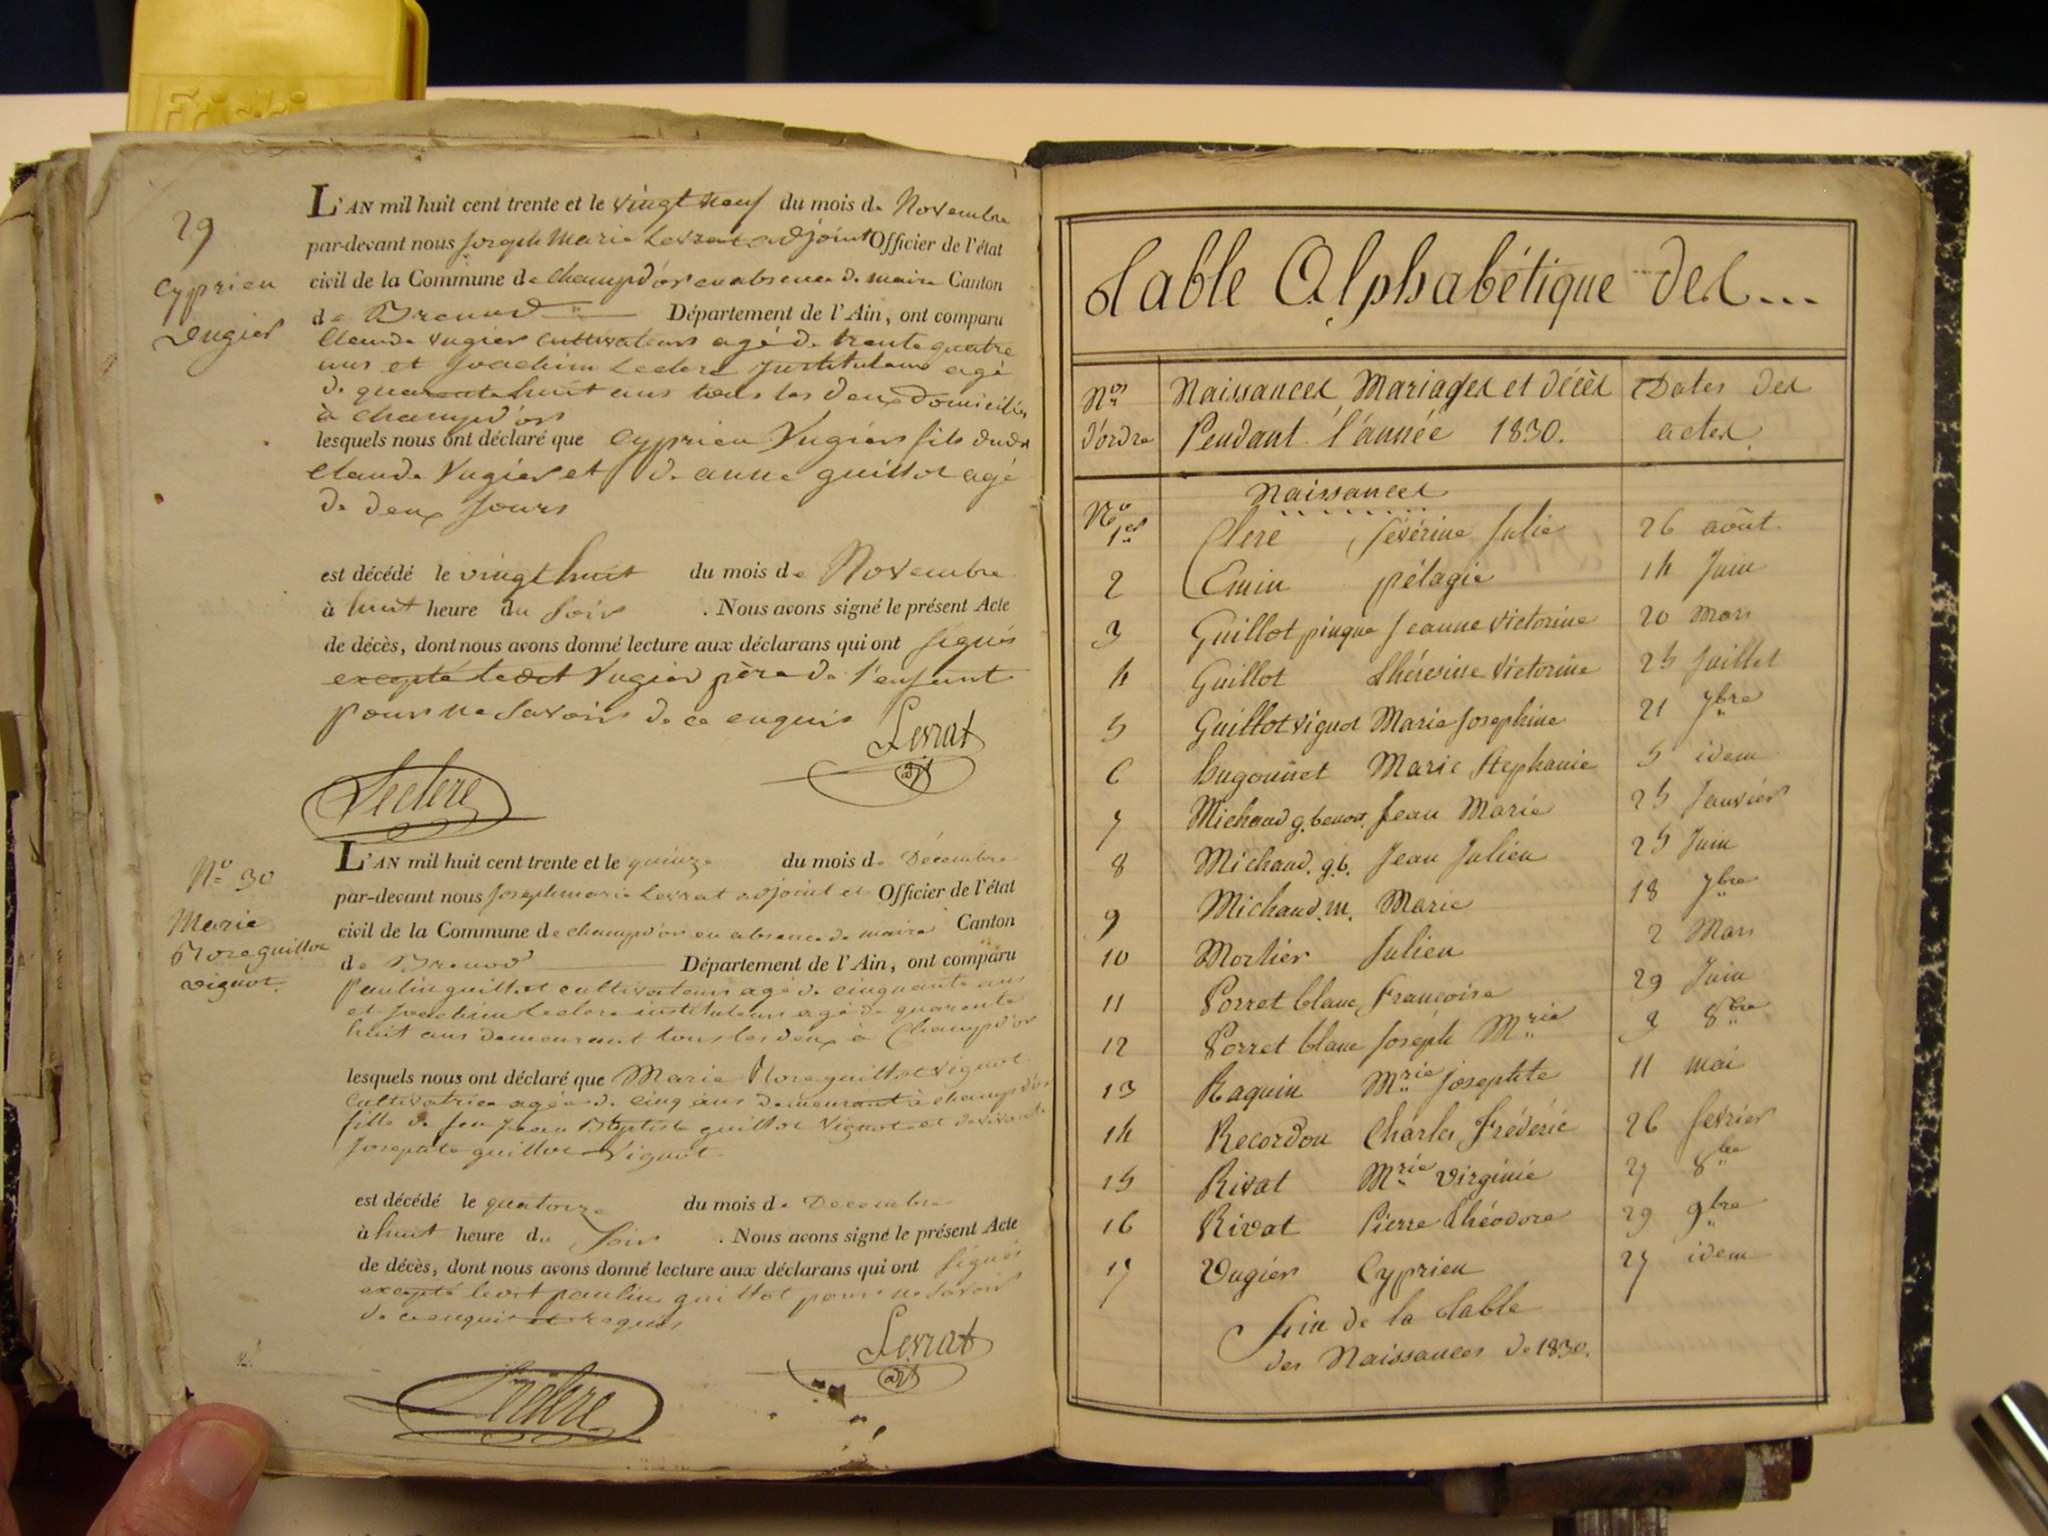 29
Cyprien
Vugier
L'AN mil huit cent trente et le vingt neuf du mois de Novembre
par-devant nous Joseph Marie Levrat adjoint Officier de l'état
civil de la Commune de Champd'or en absence de maire Canton
de Brenod Département de l'Ain, ont comparu
Claude Vugier cultivateur agé de trente quatre
ans et Joachim Leclerc Instituteur agé
de quarante huit ans tous les deux domiciliés
à Champd'or
lesquels nous ont déclaré que Cyprien Vugier fils dudit
Claude Vugier et d. anne guillot agé
de deux Jours
est décédé le vingt huit du mois de Novembre
à huit heure du Soir . Nous avons signé le présent Acte
de décès, dont nous avons donné lecture aux déclarans qui ont signés
excepté ledit Vugier père de l'enfant
pour ne Savoir de ce enquis
Levrat
adj
Leclerc
No 30
Marie
Rose guillot
vignot
L'AN mil huit cent trente et le quinze du mois de Décembre
par-devant nous Joseph marie Levrat adjoint et Officier de l'état
civil de la Commune de champd'or en absence de maire Canton
de Brenod Département de l'Ain, ont comparu
Paulin guillot cultivateur agé de cinquante ans
et Joachim Leclerc instituteur agé de quarente
huit ans demeurant tous les deux à Champd'or
lesquels nous ont déclaré que Marie Rose guillot vignot
cultivatrice agée de cinq ans demeurant à champd'or
fille de feu Jean Baptiste guillot Vignot et de vivante
Josephte guillot Vignot
est décédé le quatorze du mois de Decembre
à huit heure du Soir . Nous avons signé le présent Acte
de décès, dont nous avons donné lecture aux déclarans qui ont signés
excepté ledit paulin guillot pour ne Savoir
de ce enquis et requis
Levrat
adj
Leclerc
Table Alphabétique des...
Nos Naissances, Mariages et décès Dates des
d'ordre Pendant l'année 1830. actes
Naissances
No 1er Clerc Séverine Julie 26 août
2 Emin pélagie 14 Juin
3 Guillot pingue Jeanne Victorine 20 Mars
4 Guillot Thérésine Victorine 25 Juillet
5 Guillot vignot Marie Josephine 21 7bre
6 hugonnet Marie Stephanie 5 idem
7 Michaud g. benoit. Jean Marie 25 Janvier
8 Michaud. g. b. Jean Julien 25 Juin
9 Michaud. m. Marie 18 7bre
10 Mortier Julien 2 Mars
11 Porret blanc Françoise 29 Juin
12 Porret blanc Joseph Mrie 9 8bre
13 Raquin Mrie Josephte 11 mai
14 Recordon Charles Frédéric 26 fevrier
15 Rivat Mrie Virginie 27 8bre
16 Rivat Pierre Théodore 29 9bre
17 Vugier Cyprien 27 idem
Fin de la Table
des Naissances de 1830.